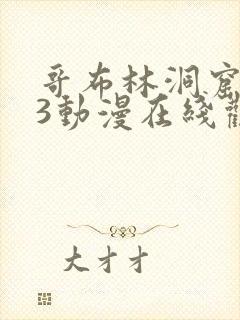 哥布林洞窟
3動漫在綫觀
大才才